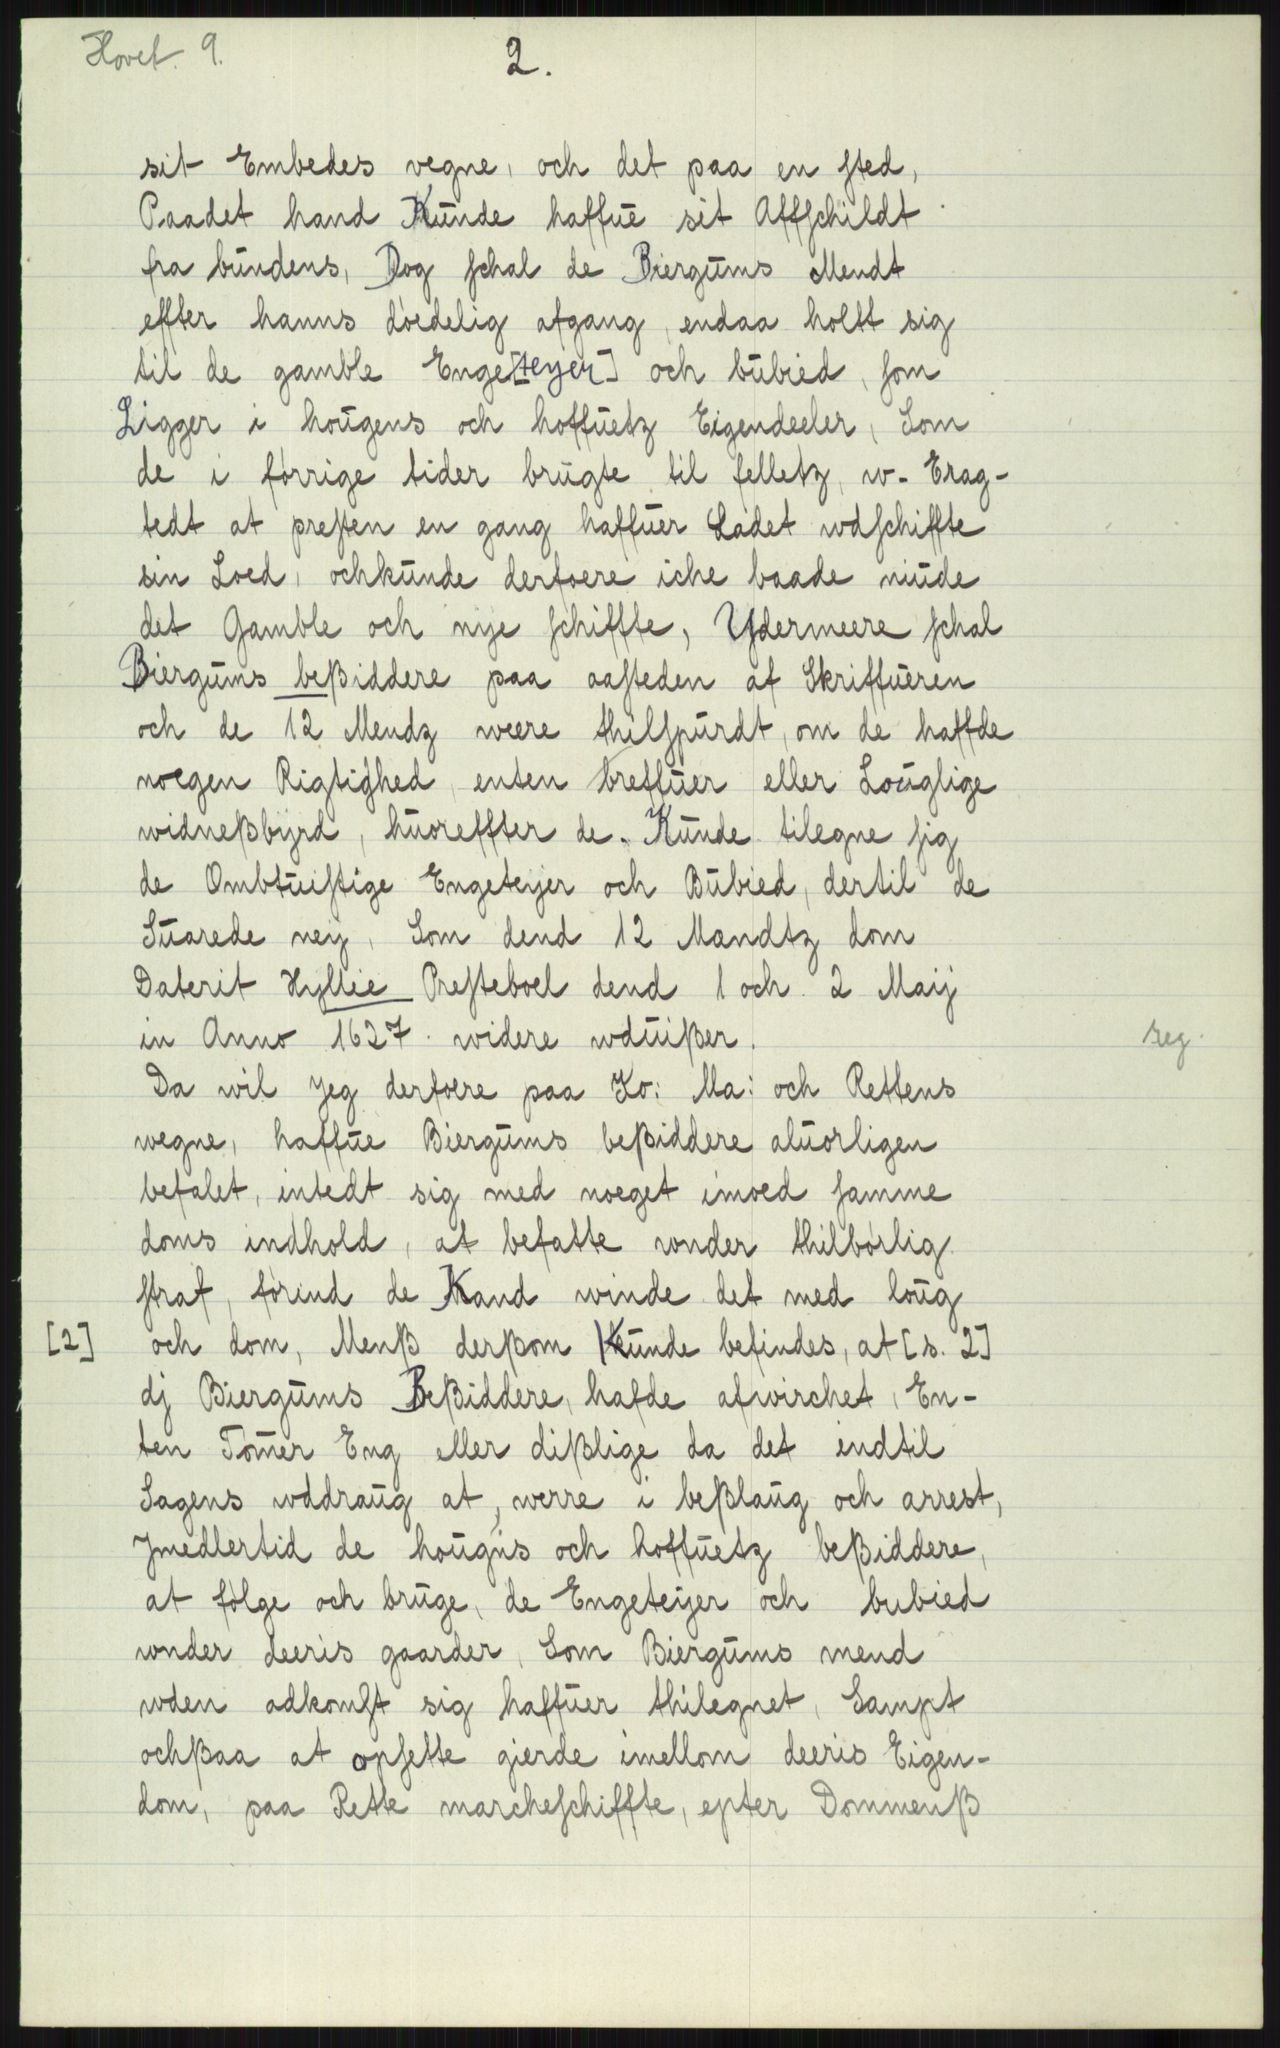 Hovet 9.
2.
sit Embedes vegne, och det paa en sted,
Paadet hand Kunde haffue sit Affschildt
fra bundens, Dog schal de Biergums Mendt
effter hanns døedelig afgang, endaa holtt sig
til de gamble Enge[teyer] och bubied, som
Ligger i hougens och hoffuetz Eigendeeler, Som
de i førrige tider brugte til felletz, w-Erag-
tedt at presten en gang haffuer Ladet wdschiffte
sin Loed, ochkunde derfoere iche baade niude
det Gamble och nye schiffte, Ydermeere schal
Biergums beßiddere paa aasteden af Skriffueren
och de 12 Mendz were thilspurdt, om de haffde
noegen Rigtighed, enten breffuer eller Louglige
widneßbyrd, huoreffter de Kunde tilegne sig
de Ombtuistige Engeteyer och Bubied, dertil de
Suarede ney, Som dend 12 Mandtz dom
Daterit Hyllie Presteboel dend 1 och 2 Maij
in Anno 1627 widere wduißer.
reg.
Da wil Jeg derfoere paa Ko: Ma: och Rettens
wegne, haffue Biergums beßiddere aluorligen
befalet, intedt sig med noeget imoed samme
doms indhold, at befatte wnder thilbørlig
straf, førind de Kand winde det med loug
[2] och dom, Menß derßom Kunde befindes, at [s. 2]
dj Biergums Beßiddere, hafde afwirchet, En-
ten Tømer Eng eller dißlige da det indtil
Sagens wddraug at, werre i beßlaug och arrest,
Jmedlertid de hougns och hoffuetz beßiddere,
at følge och bruge, de Engeteyer och bubied
wnder deeris gaarder, Som Biergums mend
wden adkomst sig haffuer thilegnet, Sampt
ochßaa at opsette gierde imellom deeris Eigen-
dom, paa Rette marcheschiffte, epter Dommenß